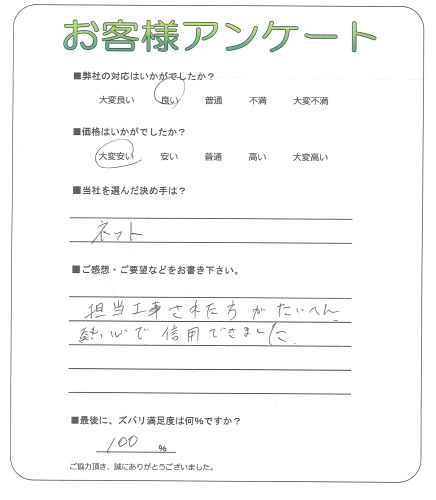 お客様アンケート
■弊社の対応はいかがでしたか？
大変良い 良い 普通 不満 大変不満
■価格はいかがでしたか？
大変安い 安い 普通 高い 大変高い
■当社を選んだ決め手は？
ネット
■ご感想・ご要望などをお書き下さい。
担当工事された方がたいへん
熱心で信用できました.
■最後に、ズバリ満足度は何％ですか？
100 ％
ご協力頂き、誠にありがとうございました。